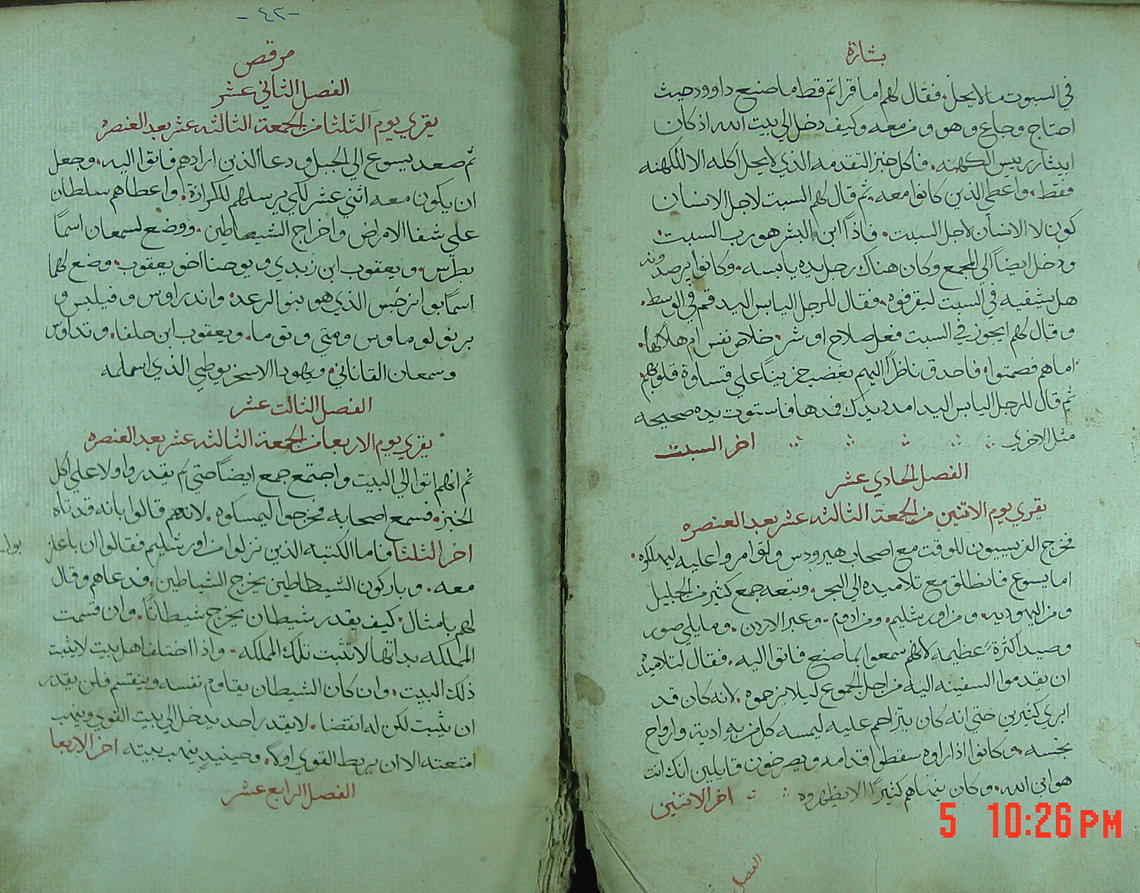 بشارة
في السبوت ما لا يحل. فقال لهم اما قراتم قط ما صنع داوود حيث
احتاج وجاع وهو ومن معه وكيف دخل الى بيت الله اذ كان
ابيثار رييس الكهنه. فاكل خبز التقدمه الذي لا يحل اكله الا للكهنه
فقط. واعطى الذين كانوا معه. ثم قال لهم السبت لاجل الانسان
كون لا الانسان لاجل السبت. فاذًا ابن البشر هو رب السبت.
ودخل ايضًا الى المجمع وكان هناك رجل يده يابسه. وكانوا يرصدونه
هل يشفيه في السبت ليقرفوه. فقال للرجل اليابس اليد قم في الوسط.
وقال لهم ايجوز في السبت فعل صلاح او شر. خلاص نفس ام هلاكها.
اما هم فصمتوا. فاحدق ناظرًا اليهم بغضب حزينًا على قساوة قلوبهم
ثم قال للرجل اليابس اليد امدد يدك فمدها فاستوت يده صحيحه
مثل الاخرى. اخر السبت
الفصل الحادي عشر
يقرى يوم الاثنين من الجمعة الثالثه عشر بعد العنصره
فخرج الفريسيون للوقت مع اصحاب هيرودس وتوامروا عليه ليهلكوه
اما يسوع فانطلق مع تلاميذه الى البحر. وتبعه جمع كثير من الجليل
ومن اليهوديه. ومن اورشليم. ومن ادوم. وعبر الاردن. وما يلي صور
وصيدا كثرة عظيمه لانهم سمعوا بما صنع فاتوا اليه. فقال لتلاميذه
ان يقدموا السفينه اليه من اجل الجموع ليلا يزحموه. لانه كان قد
ابرى كثيرين حتى انه كان يتزاحم عليه لمسه كل من به ادية وارواح
نجسه. وكانوا اذا راوه سقطوا قدامه ويصرخون قايلين انك انت
هو ابن الله. وكان ينهاهم كثيرًا الا يظهروه اخر الاثنين
الفصل
-٤٢-
مرقص
الفصل الثاني عشر
يقرى يوم الثلثا من الجمعة الثالثه عشر بعد العنصره
ثم صعد يسوع الى الجبل ودعا الذين ارادهم فاتوا اليه. وجعل
ان يكون معه اثني عشر لكي يرسلهم للكرازة. واعطاهم سلطان
على شفا الامراض واخراج الشياطين. ووضع لسمعان اسمًا
بطرس. ويعقوب ابن زبدي ويوحنا اخو يعقوب. وضع لهما
اسما بوانرجس الذي هو بنو الرعد. واندراوس وفيلبس و
برثولوماوس ومتى وتوما. ويعقوب ابن حلفا. وتداوس
وسمعان القاناني. ويهودا الاسخريوطي الذي اسلمه
الفصل الثالث عشر
يقرى يوم الاربعا من الجمعة الثالثه عشر بعد العنصره
ثم انهم اتوا الى البيت واجتمع جمع ايضًا حتى لم يقدروا ولا على اكل
الخبز. فسمع اصحابه فخرجوا ليمسكوه. لانهم قالوا بانه قد تاه
اخر الثلثا فاما الكتبه الذين نزلوا من اورشليم فقالوا ان باعلز بول
معه. وباركون الشياطين يخرج الشياطين. فدعاهم وقال
لهم بامثال. كيف يقدر شيطان يخرج شيطانًا. وان قسمت
المملكه بذاتها لا تثبت تلك المملكه. واذا اختلف اهل بيت لا يثبت
ذلك البيت. وان كان الشيطان يقاوم نفسه وينقسم فلن يقدر
ان يثبت لكن له انقضا. لا يقدر احد يدخل الى بيت القوي وينهب
امتعته الا ان يربط القوي اولًا. وحينيذٍ ينهب بيته اخر الاربعا
الفصل الرابع عشر
5 10:26PM